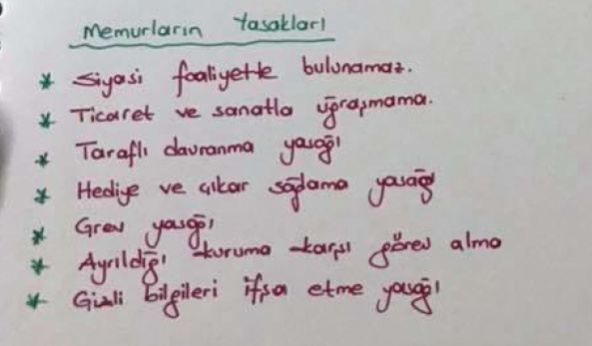 Memurların Yasakları
* Siyasi faaliyette bulunamaz.
* Ticaret ve sanatla uğraşmama.
* Taraflı davranma yasağı
* Hediye ve çıkar sağlama yasağı
* Grev yasağı
* Ayrıldığı kuruma karşı görev alma
* Gizli bilgileri ifşa etme yasağı